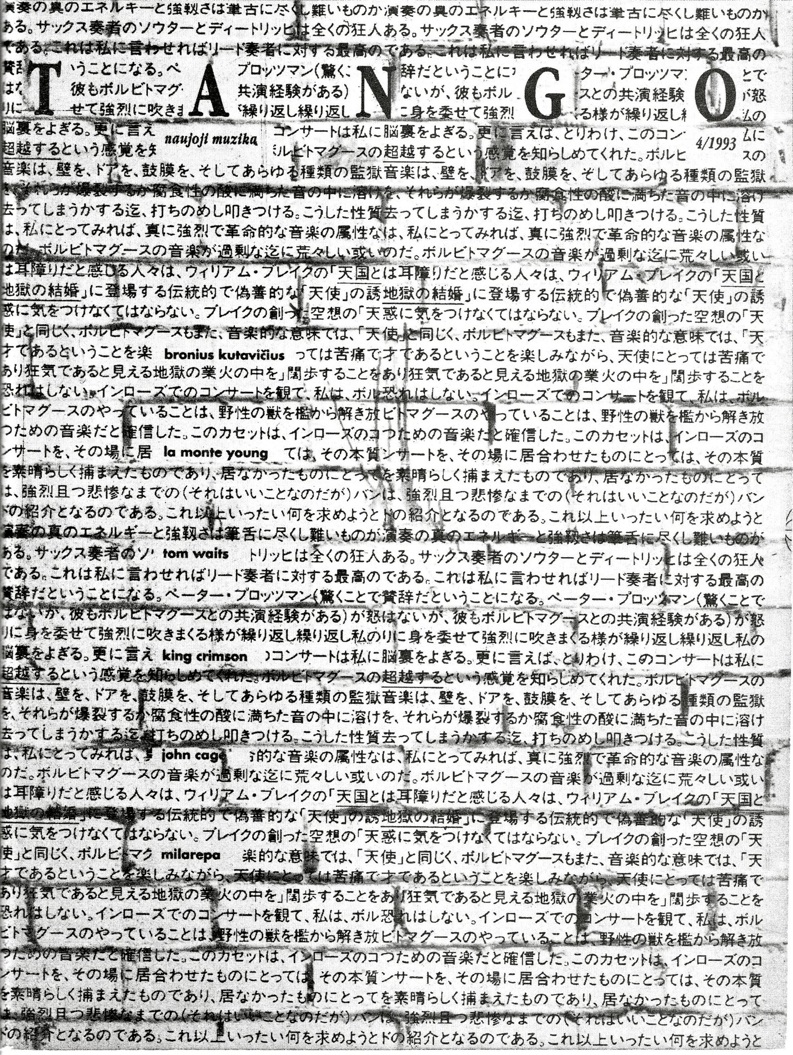 演奏の真のエネルギーと強靱さは筆舌に尽くし難いものか演奏の真のエネルギーと強靱さは筆舌に尽くし難いものか
ある。サックス奏者のソウターとディートリッヒは全くの狂人ある。サックス奏者のソウターとディートリッヒは全くの狂人
である。これは私に言わせればリード奏者に対する最高のである。これは私に言わせればリード奏者に対する最高の
TANGO
naujoji muzika
4/1993
音楽は、壁を、ドアを、鼓膜を、そしてあらゆる種類の監獄音楽は、壁を、ドアを、鼓膜を、そしてあらゆる種類の監獄
を、それらが爆裂するか腐食性の酸に満ちた音の中に溶けを、それらが爆裂するか腐食性の酸に満ちた音の中に溶け
去ってしまうかする迄、打ちのめし叩きつける。こうした性質去ってしまうかする迄、打ちのめし叩きつける。こうした性質
は、私にとってみれば、真に強烈で革命的な音楽の属性なは、私にとってみれば、真に強烈で革命的な音楽の属性な
のだ。ボルビトマグースの音楽が過剰な迄に荒々しい或いのだ。ボルビトマグースの音楽が過剰な迄に荒々しい或い
は耳障りだと感じる人々は、ウィリアム・ブレイクの「天国とは耳障りだと感じる人々は、ウィリアム・ブレイクの「天国と
地獄の結婚」に登場する伝統的で偽善的な「天使」の誘地獄の結婚」に登場する伝統的で偽善的な「天使」の誘
惑に気をつけなくてはならない。ブレイクの創った空想の「天惑に気をつけなくてはならない。ブレイクの創った空想の「天
使」と同じく、ボルビトマグースもまた、音楽的な意味では、「天使」と同じく、ボルビトマグースもまた、音楽的な意味では、「天
才であるということを楽 bronius kutavičius っては苦痛で才であるということを楽しみながら、天使にとっては苦痛で
あり狂気であると見える地獄の業火の中を」闊歩することをあり狂気であると見える地獄の業火の中を」闊歩することを
恐れはしない。インローズでのコンサートを観て、私は、ボル恐れはしない。インローズでのコンサートを観て、私は、ボル
ビトマグースのやっていることは、野性の獣を檻から解き放ビトマグースのやっていることは、野性の獣を檻から解き放
つための音楽だと確信した。このカセットは、インローズのコつための音楽だと確信した。このカセットは、インローズのコ
ンサートを、その場に居 la monte young ては、その本質ンサートを、その場に居合わせたものにとっては、その本質
を素晴らしく捕まえたものであり、居なかったものにとってを素晴らしく捕まえたものであり、居なかったものにとって
は、強烈且つ悲惨なまでの(それはいいことなのだが)バンは、強烈且つ悲惨なまでの(それはいいことなのだが)バン
ドの紹介となるのである。これ以上いったい何を求めようとドの紹介となるのである。これ以上いったい何を求めようと
演奏の真のエネルギーと強靱さは筆舌に尽くし難いものが演奏の真のエネルギーと強靱さは筆舌に尽くし難いものが
ある。サックス奏者のソ tom waits トリッヒは全くの狂人ある。サックス奏者のソウターとディートリッヒは全くの狂人
である。これは私に言わせればリード奏者に対する最高のである。これは私に言わせればリード奏者に対する最高の
賛辞だということになる。ペーター・ブロッツマン(驚くことで賛辞だということになる。ペーター・ブロッツマン(驚くことで
はないが、彼もボルビトマグースとの共演経験がある)が怒はないが、彼もボルビトマグースとの共演経験がある)が怒
りに身を委せて強烈に吹きまくる様が繰り返し繰り返し私のりに身を委せて強烈に吹きまくる様が繰り返し繰り返し私の
脳裏をよぎる。更に言え king crimson コンサートは私に脳裏をよぎる。更に言えば、とりわけ、このコンサートは私に
超越するという感覚を知らしめてくれた。ボルビトマグースの超越するという感覚を知らしめてくれた。ボルビトマグースの
音楽は、壁を、ドアを、鼓膜を、そしてあらゆる種類の監獄音楽は、壁を、ドアを、鼓膜を、そしてあらゆる種類の監獄
を、それらが爆裂するか腐食性の酸に満ちた音の中に溶けを、それらが爆裂するか腐食性の酸に満ちた音の中に溶け
去ってしまうかする迄、打ちのめし叩きつける。こうした性質去ってしまうかする迄、打ちのめし叩きつける。こうした性質
は、私にとってみれば、 john cage 的な音楽の属性なは、私にとってみれば、真に強烈で革命的な音楽の属性な
のだ。ボルビトマグースの音楽が過剰な迄に荒々しい或いのだ。ボルビトマグースの音楽が過剰な迄に荒々しい或い
は耳障りだと感じる人々は、ウィリアム・ブレイクの「天国とは耳障りだと感じる人々は、ウィリアム・ブレイクの「天国と
地獄の結婚」に登場する伝統的で偽善的な「天使」の誘地獄の結婚」に登場する伝統的で偽善的な「天使」の誘
惑に気をつけなくてはならない。ブレイクの創った空想の「天惑に気をつけなくてはならない。ブレイクの創った空想の「天
使」と同じく、ボルビトマグ milarepa 楽的な意味では、「天使」と同じく、ボルビトマグースもまた、音楽的な意味では、「天
才であるということを楽しみながら、天使にとっては苦痛で才であるということを楽しみながら、天使にとっては苦痛で
あり狂気であると見える地獄の業火の中を」闊歩することをあり狂気であると見える地獄の業火の中を」闊歩することを
恐れはしない。インローズでのコンサートを観て、私は、ボル恐れはしない。インローズでのコンサートを観て、私は、ボル
ビトマグースのやっていることは、野性の獣を檻から解き放ビトマグースのやっていることは、野性の獣を檻から解き放
つための音楽だと確信した。このカセットは、インローズのコつための音楽だと確信した。このカセットは、インローズのコ
ンサートを、その場に居合わせたものにとっては、その本質ンサートを、その場に居合わせたものにとっては、その本質
を素晴らしく捕まえたものであり、居なかったものにとってを素晴らしく捕まえたものであり、居なかったものにとって
は、強烈且つ悲惨なまでの(それはいいことなのだが)バンは、強烈且つ悲惨なまでの(それはいいことなのだが)バン
ドの紹介となるのである。これ以上いったい何を求めようとドの紹介となるのである。これ以上いったい何を求めようと